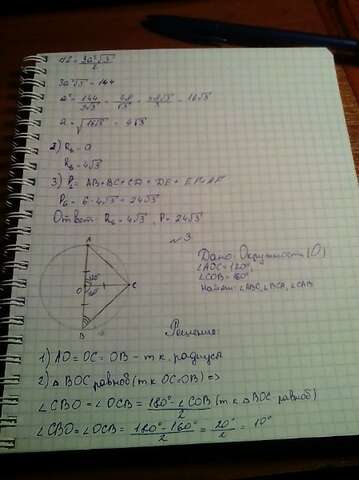 72 = 3a²√3 / 2
3a²√3 = 144
a² = 144 / 3√3 = 48 / √3 = 48√3 / 3 = 16√3
a = √16√3 = 4√3
2) R₆ = a
R₆ = 4√3
3) P₆ = AB + BC + CD + DE + EF + AF
P₆ = 6·4√3 = 24√3
Ответ: R₆ = 4√3, P = 24√3
№3
Дано: Окружность (O)
∠AOC = 120°,
∠COB = 160°
Найти: ∠ABC, ∠BCA, ∠CAB
A
120°
O
C
B
Решение:
1) AO = OC = OB – т.к. радиусы
2) △BOC равноб (т.к. OC = OB) =>
∠CBO = ∠OCB = 180° - ∠COB / 2 (т.к. △BOC равноб)
∠CBO = ∠OCB = 180° - 160° / 2 = 20° / 2 = 10°